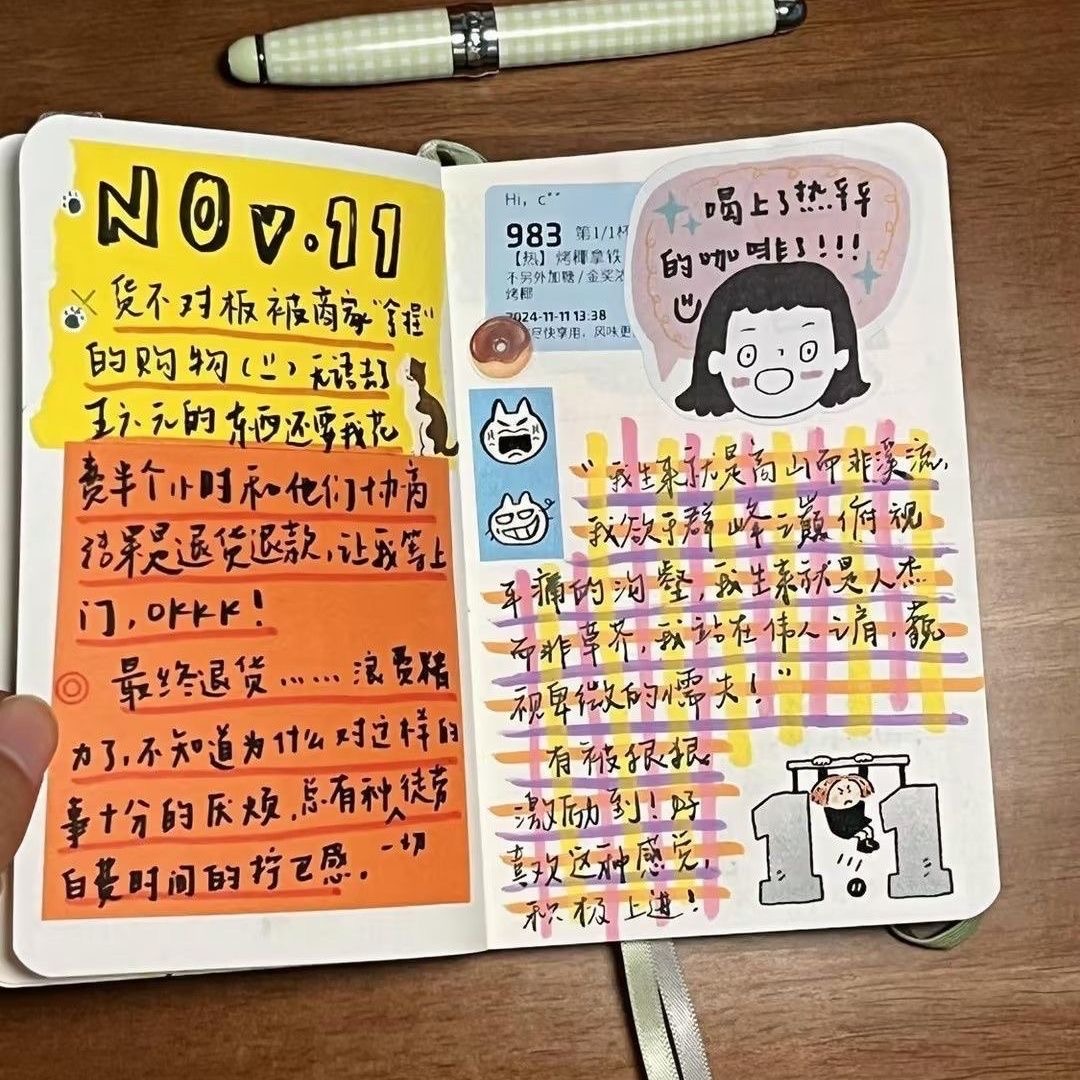 NOv.11
货不对板被商家“拿捏”
的购物(二)无语去了
五六元的东西还要我花
费半个小时和他们协商
结果是退货退款,让我等上
门,OKKK!
最终退货……浪费精
力了,不知道为什么对这样的
事十分的厌烦,总有种一切徒劳
白费时间的拧巴感.
Hi, c**
983 第1/1杯
【热】烤椰拿铁
不另外加糖/金奖浓
烤椰
2024-11-11 13:38
尽快享用,风味更
喝上了热乎乎
的咖啡了!!!
“我生来就是高山而非溪流,
我欲于群峰之巅俯视
平庸的沟壑,我生来就是人杰
而非草芥,我站在伟人之肩,藐
视卑微的懦夫!”
有被狠狠
激励到!好
喜欢这种感觉,
积极上进!
11